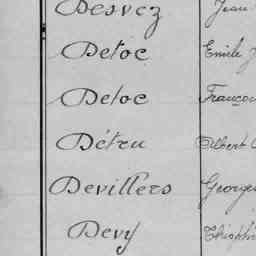 Desvez Jean
Detoc Emile J
Detoc Françou
Détru Albert
Devillers George
Devy Théophi